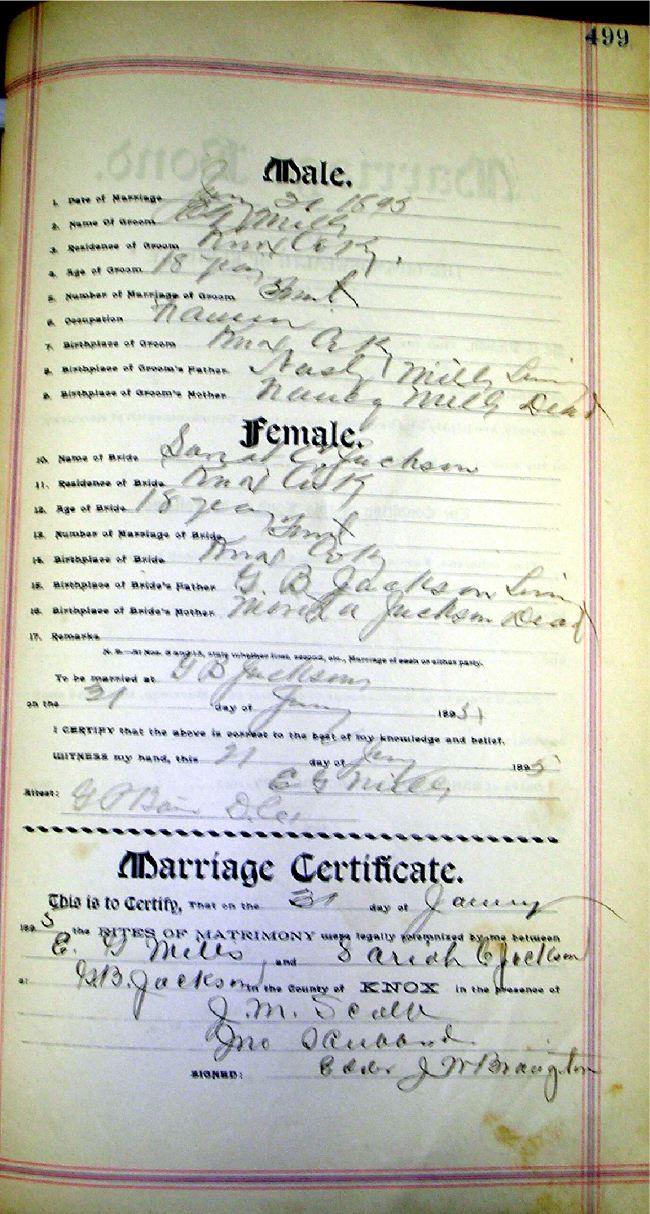 499
Male.
1. Date of Marriage Jan 31 1895
2. Name Of Groom E G Mills
3. Residence of Groom Knox Co Ky.
4. Age of Groom 18 years
5. Number of Marriage of Groom First
6. Occupation
7. Birthplace of Groom Knox Co K
8. Birthplace of Groom's Father Mills Living
9. Birthplace of Groom's Mother Nancy Mills Dead
Female.
10. Name of Bride Sarah E Jackson
11. Residence of Bride Knox Co K
12. Age of Bride 18 years
13. Number of Marriage of Bride First
14. Birthplace of Bride Knox Co K
15. Birthplace of Bride's Father G. B Jackson Living
16. Birthplace of Bride's Mother Jackson Dead
17. Remarks
N. B.—At Nos. 5 and 13, state whether first, second, etc., Marriage of each or either party.
To be married at G B Jacksons
on the 31 day of Jany 189
I CERTIFY that the above is correct to the best of my knowledge and belief.
WITNESS my hand, this 21 day of Jany 1895
E G Mills
Attest:
Marriage Certificate.
This is to Certify, That on the 31 day of Janury
1895 the RITES OF MATRIMONY were legally solemnized by me between
E. G Mills and Sariah E Jackson
at G.B. Jackson in the County of KNOX in the presence of
J. M. Scalf
Jno
SIGNED: Elder J W Broughton